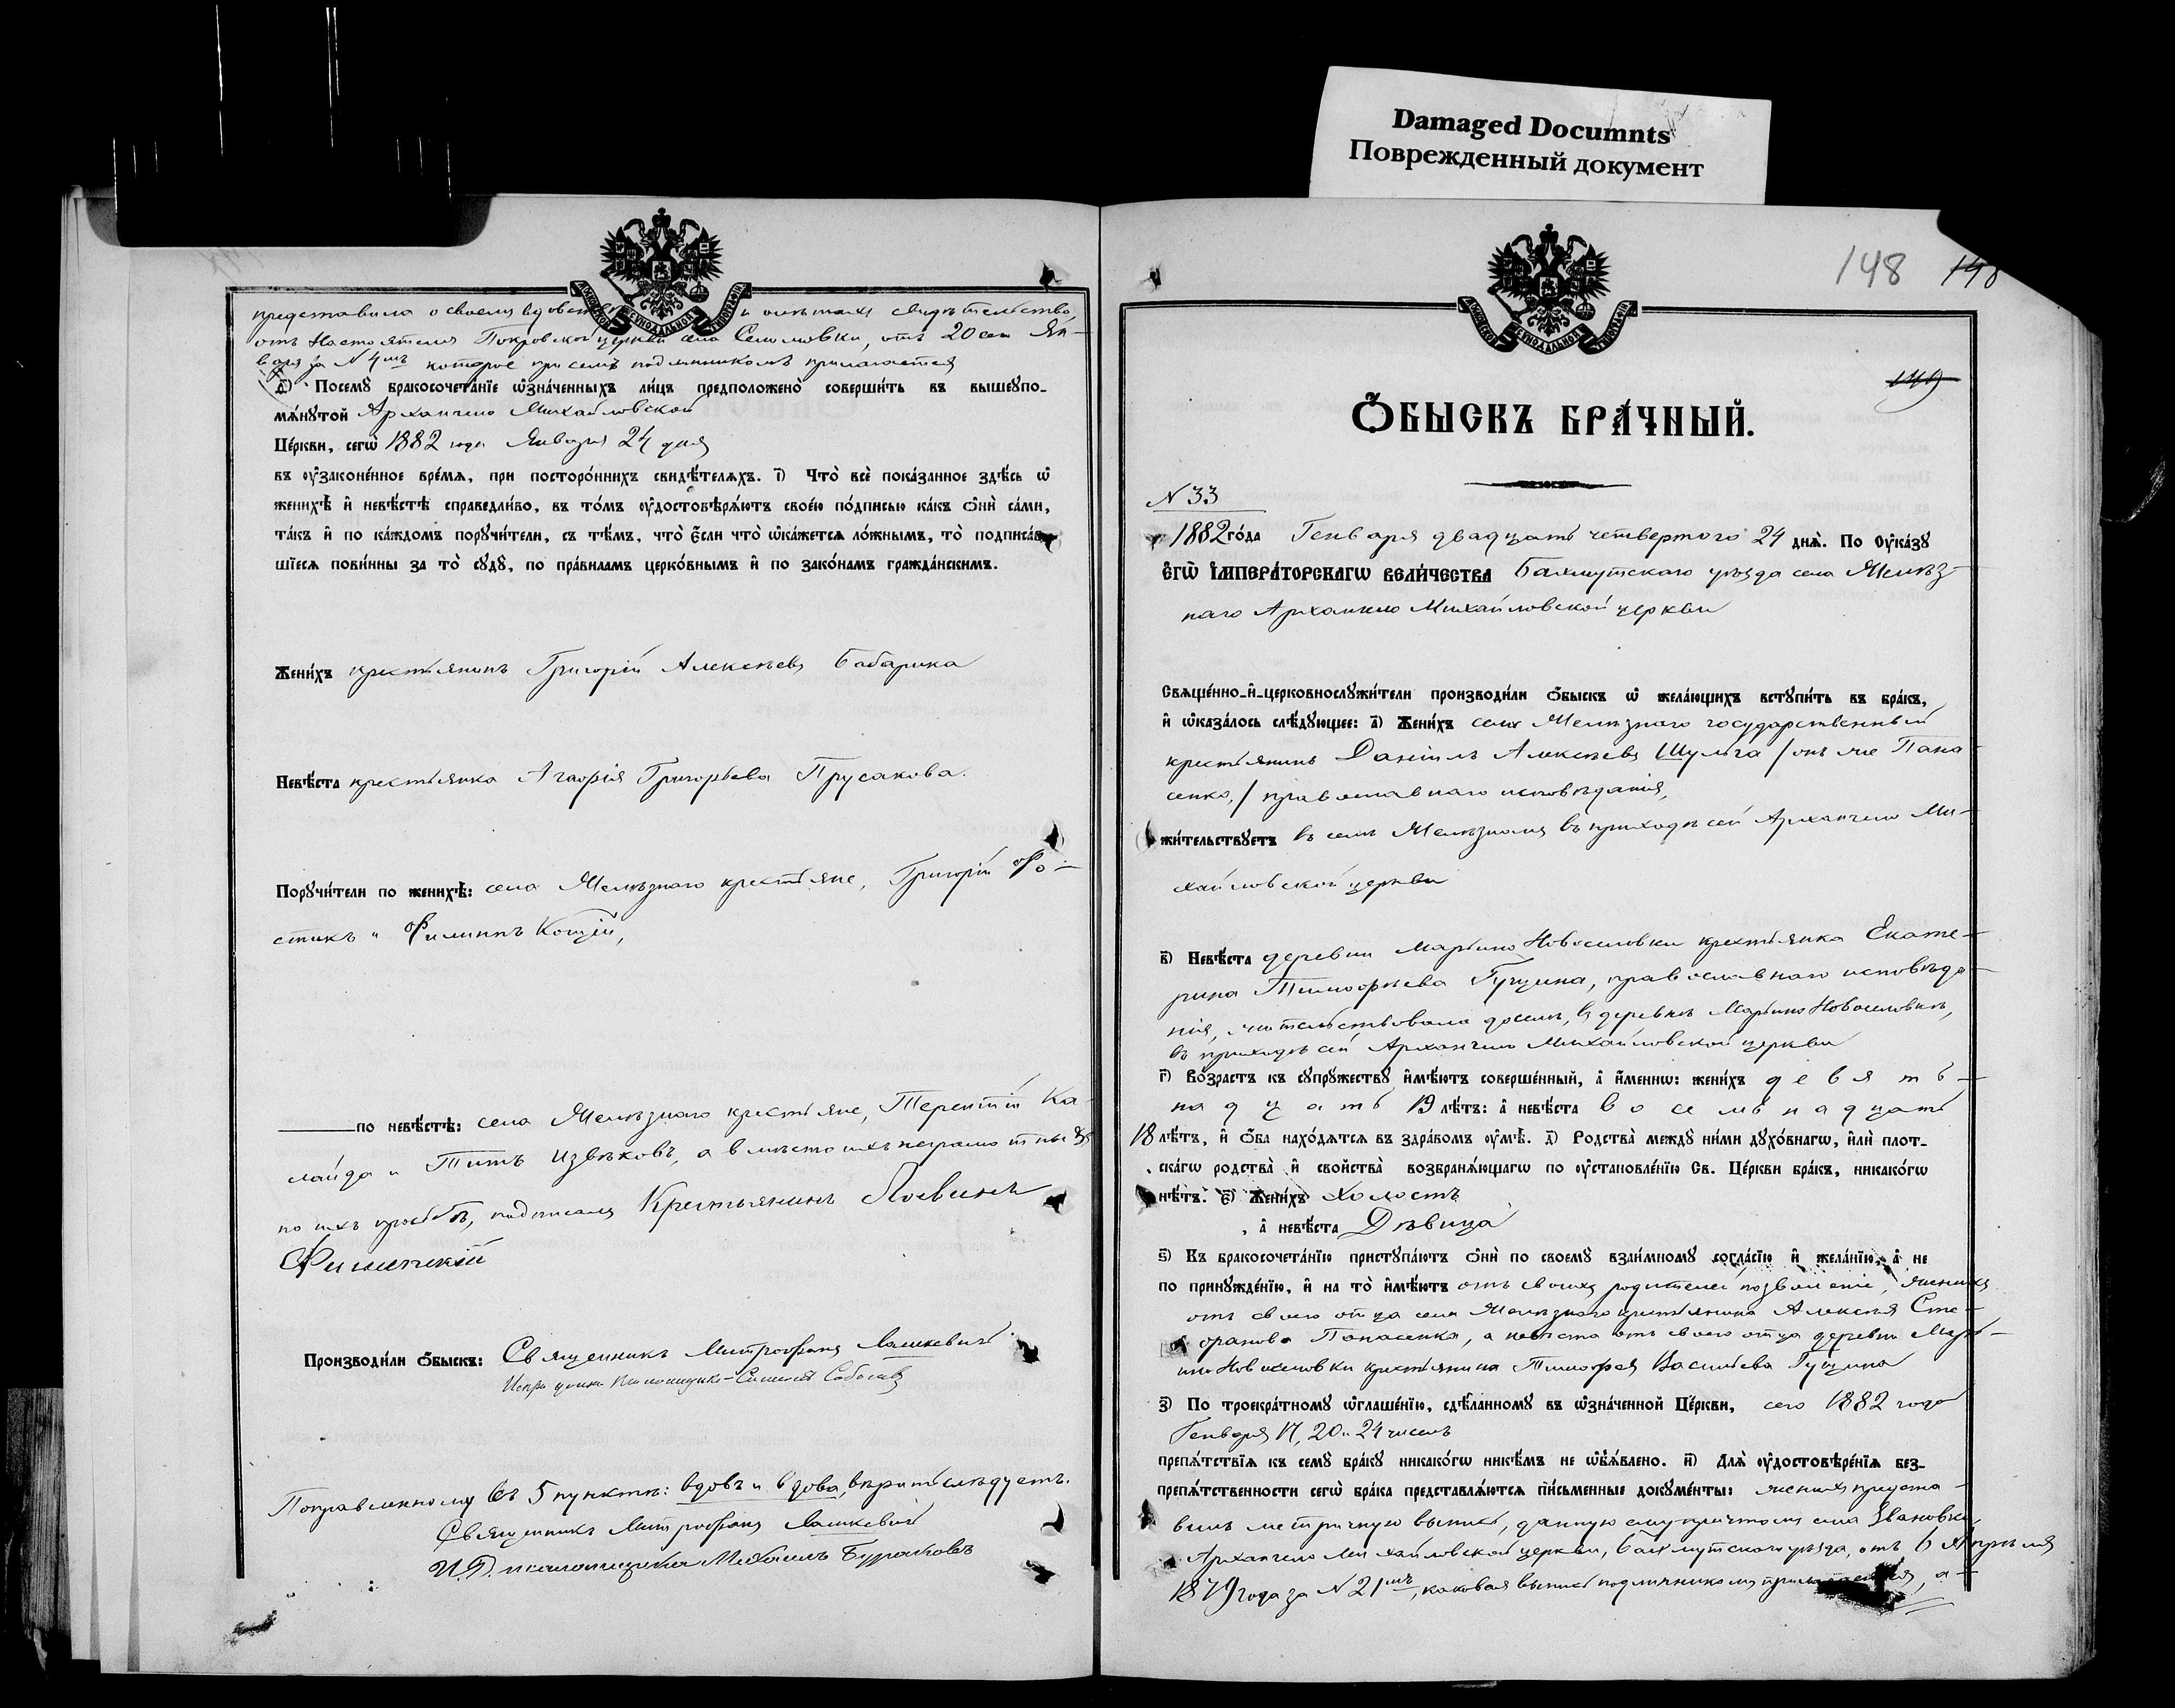 Damaged Documnts
Поврежденный документ
МОСКОВСКОЙ СѴНОДАЛЬНОЙ ТИПОГРАФІИ
представила о своемъ вдовств и лѣтахъ свидѣтельство,
отъ Настоятеля Покровской церкви села , отъ 20 сего Ян-
варя за N 4мъ которое при семъ подлинникомъ прилагается
д҃) Посемꙋ бракосочета́нїе ѡ҆зна́ченныхъ ли́цъ предположено̀ соверши́ть въ вышеꙋпо-
мѧ́нꙋтой Архангело Михайловской
Це́ркви, сегѡ̀ 1882 года Января 24 дня
въ ᲂу҆законе́нное вре́мѧ, при посторо́ннихъ свидѣ́телѧхъ. і҃) Что̀ всѐ пока́занное здѣ́сь ѡ҆
женихѣ̀ и҆ невѣ́стѣ справедли́во, въ то́мъ ᲂу҆достовѣрѧ́ютъ свое́ю по́дписью ка́къ ѻ҆нѝ са́ми,
та́къ и҆ по ка́ждомъ порꙋчи́тели, съ тѣ́мъ, что̀ є҆́сли что̀ ѡ҆ка́жется ло́жнымъ, то̀ подписа́в-
шїеся пови́нны за то̀ сꙋдꙋ̀, по пра́виламъ церко́внымъ и҆ по зако́намъ гражда́нскимъ.
Жени́хъ крестьянинъ Григорій Алексѣевъ Бабарика
Невѣ́ста крестьянка Агафія Григорьева Прусакова.
Порꙋчи́тели по женихѣ̀: села Желѣзнаго крестьяне, Григорій Фо-
стикъ и Филиппъ Кощій,
по невѣ́стѣ: села Желѣзнаго крестьяне, Терентій Ка-
лайда и Титъ Извѣковъ, а вмѣсто ихъ неграмотныхъ
по ихъ прозьбѣ, подписалъ Крестьянинъ Логвинъ
Филипскій
Производи́ли ѻ҆́быскъ: Священникъ Митрофанъ Лашкевичъ
Псаломщика
Поправленному въ 5 пунктѣ: вдовъ и вдова, вѣрить слѣдуетъ.
Священникъ Митрофанъ Лашкевичъ
И.Д. псаломщика Михаилъ Бураковъ
148 148
149
МОСКОВСКОЙ СѴНОДАЛЬНОЙ ТИПОГРАФІИ
Ѻ҆́БЫСКЪ БРА́ЧНЫЙ.
N 33
1882 го́да Генваря двадцать четвертаго 24 днѧ̀. По Оу҆ка́зꙋ
Є҆ГѠ̀ І҆МПЕРА́ТОРСКАГѠ ВЕЛИ́ЧЕСТВА Бахмутскаго уѣзда села Желѣз-
наго Архангело Михайловской церкви
Свѧще́нно-и҆-церковнослꙋжи́тели производи́ли ѻ҆́быскъ ѡ҆ жела́ющихъ встꙋпи́ть въ бра́къ,
и҆ ѡ҆каза́лось слѣ́дꙋющее: а҃) Жени́хъ села Желѣзнаго государственный
крестьянинъ Даніилъ Алексѣевъ Шульга /онъ же Пана-
сенко,/ православнаго исповѣданія,
жи́тельствꙋетъ въ селѣ Желѣзномъ въ приходѣ сей Архангело Ми-
хайловской церкви
в҃) Невѣ́ста деревни Марьино Новоселовки крестьянка Екате-
рина Тимофѣева Гущина, православнаго исповѣда-
нія, жительствовала доселѣ, въ деревнѣ Марьино Новоселовкѣ,
въ приходѣ сей Архангело Михайловской церкви
г҃) Во́зрастъ къ сꙋпрꙋжествꙋ и҆мѣ́ютъ соверше́нный, а҆ и҆́меннѡ: жени́хъ девять-
надцать 19 лѣ́тъ: а҆ невѣ́ста восемьнадцать
18 лѣ́тъ, и҆ ѻ҆́ба нахо́дѧтся въ здра́вомъ ᲂу҆мѣ̀. д҃) Родства̀ междꙋ̀ ни́ми дꙋхо́внагѡ, и҆лѝ плот-
ска́гѡ родства̀ и҆ сво́йства̀ возбранѧ́ющагѡ по ᲂу҆становле́нїю Св. Це́ркви бра́къ, никако́гѡ
нѣ́тъ. є҃) Жени́хъ холостъ
, а҆ невѣ́ста Дѣвица
ѕ҃) Къ бракосочета́нїю пристꙋпа́ютъ ѻ҆нѝ по своемꙋ̀ взаи́мномꙋ согла́сїю и҆ жела́нїю, а҆ не
по принꙋжде́нїю, и҆ на то̀ и҆мѣ́ютъ отъ своихъ родителей позволеніе, женихъ
отъ своего отца села Желѣзнаго крестьянина Алексѣя Сте-
фанова Панасенка, а невѣста отъ своего отца деревни Марь-
ино Новоселовки крестьянина Тимофея Васильева Гущина
з҃) По троекра́тномꙋ ѡ҆глаше́нїю, сдѣ́ланномꙋ въ ѡ҆зна́ченной Це́ркви, сего 1882 года
Генваря 17, 20 и 24 чиселъ
препѧ́тствїѧ къ семꙋ̀ бра́кꙋ никако́гѡ никѣ́мъ не ѡ҆б̾ѧ́влено. и҃) Длѧ̀ ᲂу҆достовѣре́нїѧ без-
препѧ́тственности сегѡ̀ бра́ка представлѧ́ются пи́сьменные докꙋме́нты: женихъ предста-
вилъ метричную выпись, данную ему причтомъ села Звановки
Архангело Михайловской церкви, Бахмутскаго уѣзда, отъ 6 Апрѣля
1879 года за N 21мъ, каковая выпись подлинникомъ прилагается, а-